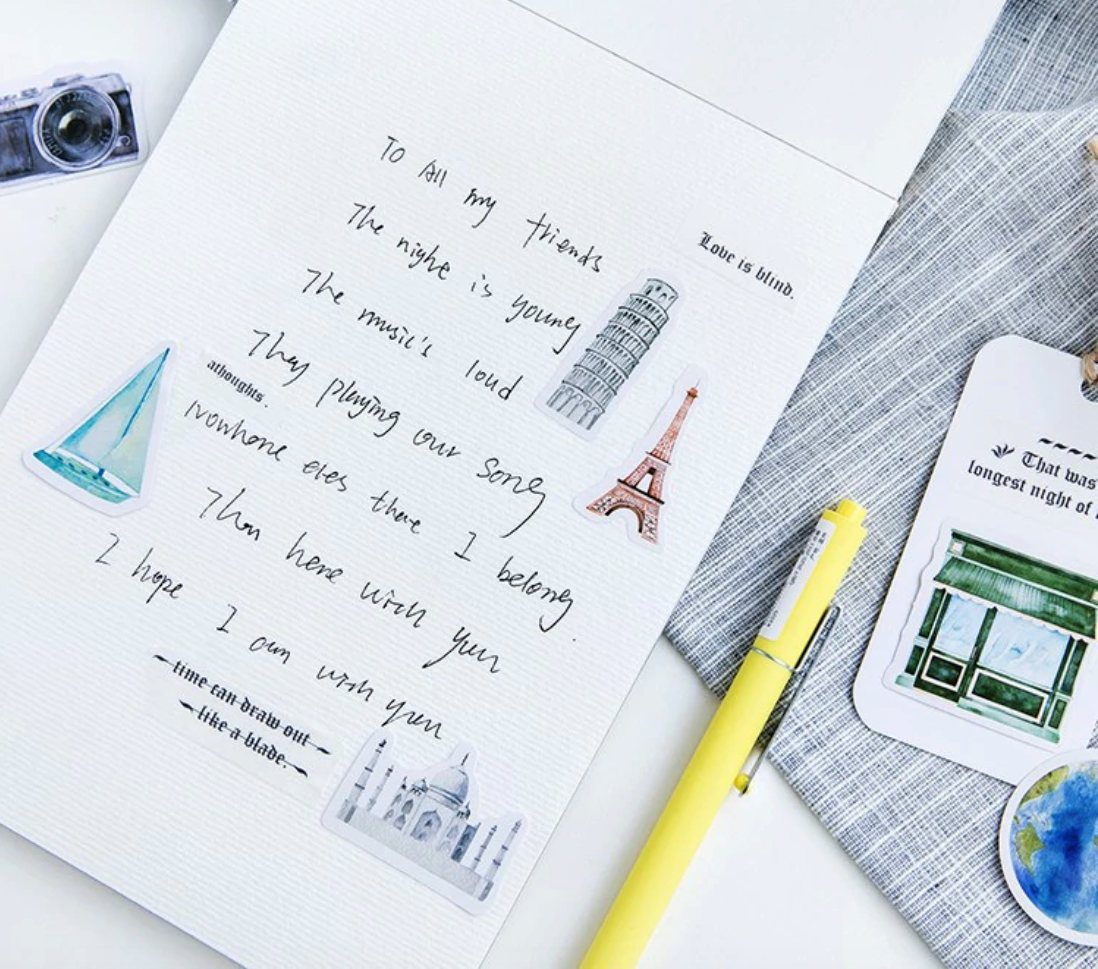 To All my friends
Love is blind.
The nighe is young
The music's loud
They playing our song
athoughts.
Nowhere eles there I belong.
Then here with you
I hope I am with you
time can draw out
like a blade.
That was
longest night of